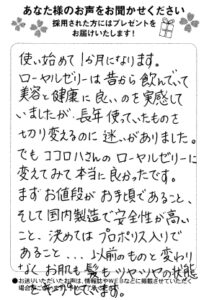 あなた様のお声をお聞かせください
採用された方にはプレゼントを
お届けいたします!
使い始めて1か月になります。
ローヤルゼリーは昔から飲んでいて
美容と健康に良いのを実感して
いましたが、長年使っていたものを
切り変えるのに迷いがありました。
でもココロハさんのローヤルゼリーに
変えてみて本当に良かったです。
まずお値段がお手頃であること、
そして国内製造で安全性が高い
こと、決めてはプロポリス入りで
あること...以前のものと変わり
なくお肌も髪もツヤツヤの状態
をキープしています。
●お送りいただいたお声は、情報誌やWEBなどに掲載させていただく